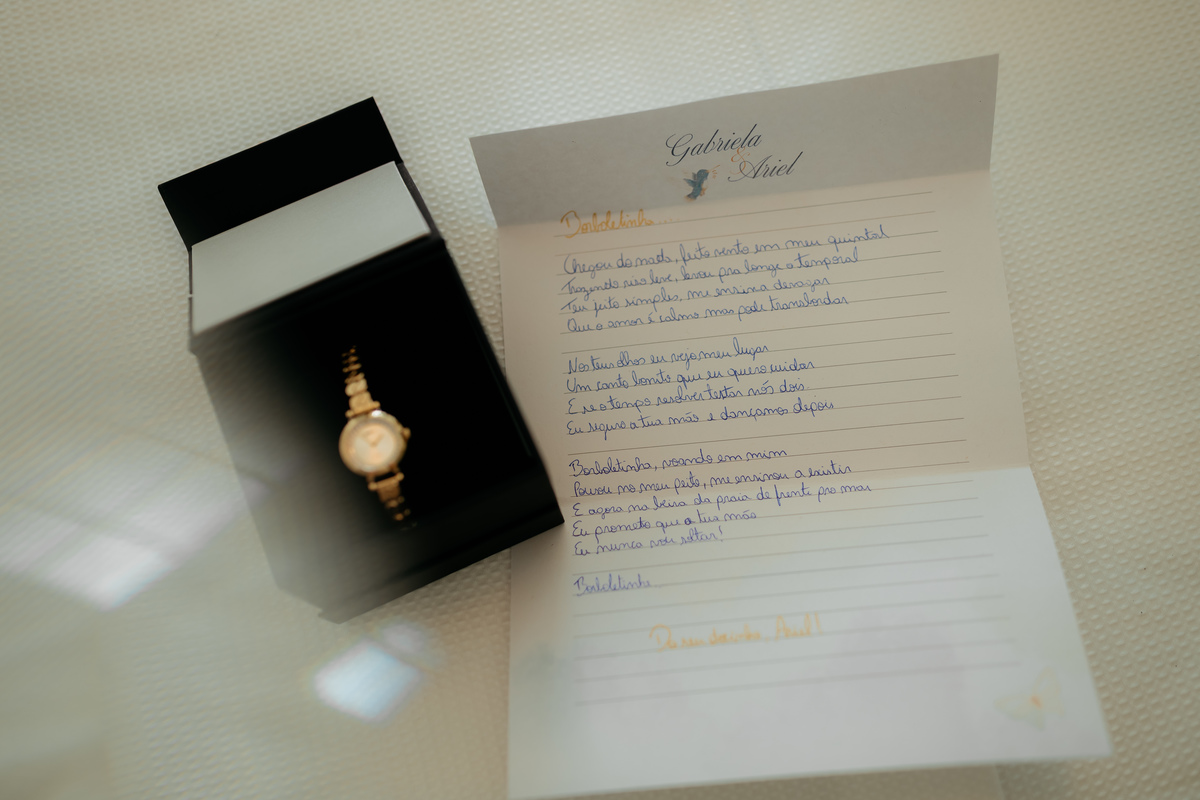 Gabriela
&
Ariel
Borboletinha...
Chegou do nada, feito vento em meu quintal
Trazendo riso leve, levou pra longe o temporal
Teu jeito simples, me ensina devagar
Que o amor é calmo mas pode transbordar
Nos teus olhos eu vejo meu lugar
Um canto bonito que eu quero cuidar
E se o tempo resolver testar nós dois
Eu seguro a tua mão e dançamos depois
Borboletinha, voando em mim
Pousou no meu peito, me ensinou a existir
E agora na beira da praia de frente pro mar
Eu prometo que a tua mão
Eu nunca vou soltar!
Borboletinha
Do seu Ariel!